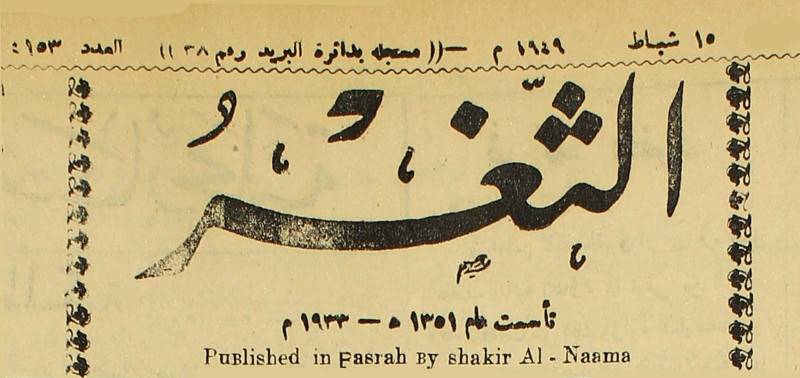 ١٥ شباط ١٩٤٩ م —(( مسجله بدائرة البريد رقم ٣٨ )) العدد ١٥٣ :
الثغر
تأسست عام ١٣٥١ ه — ١٩٣٣ م
Published in Basrah By shakir Al - Naama